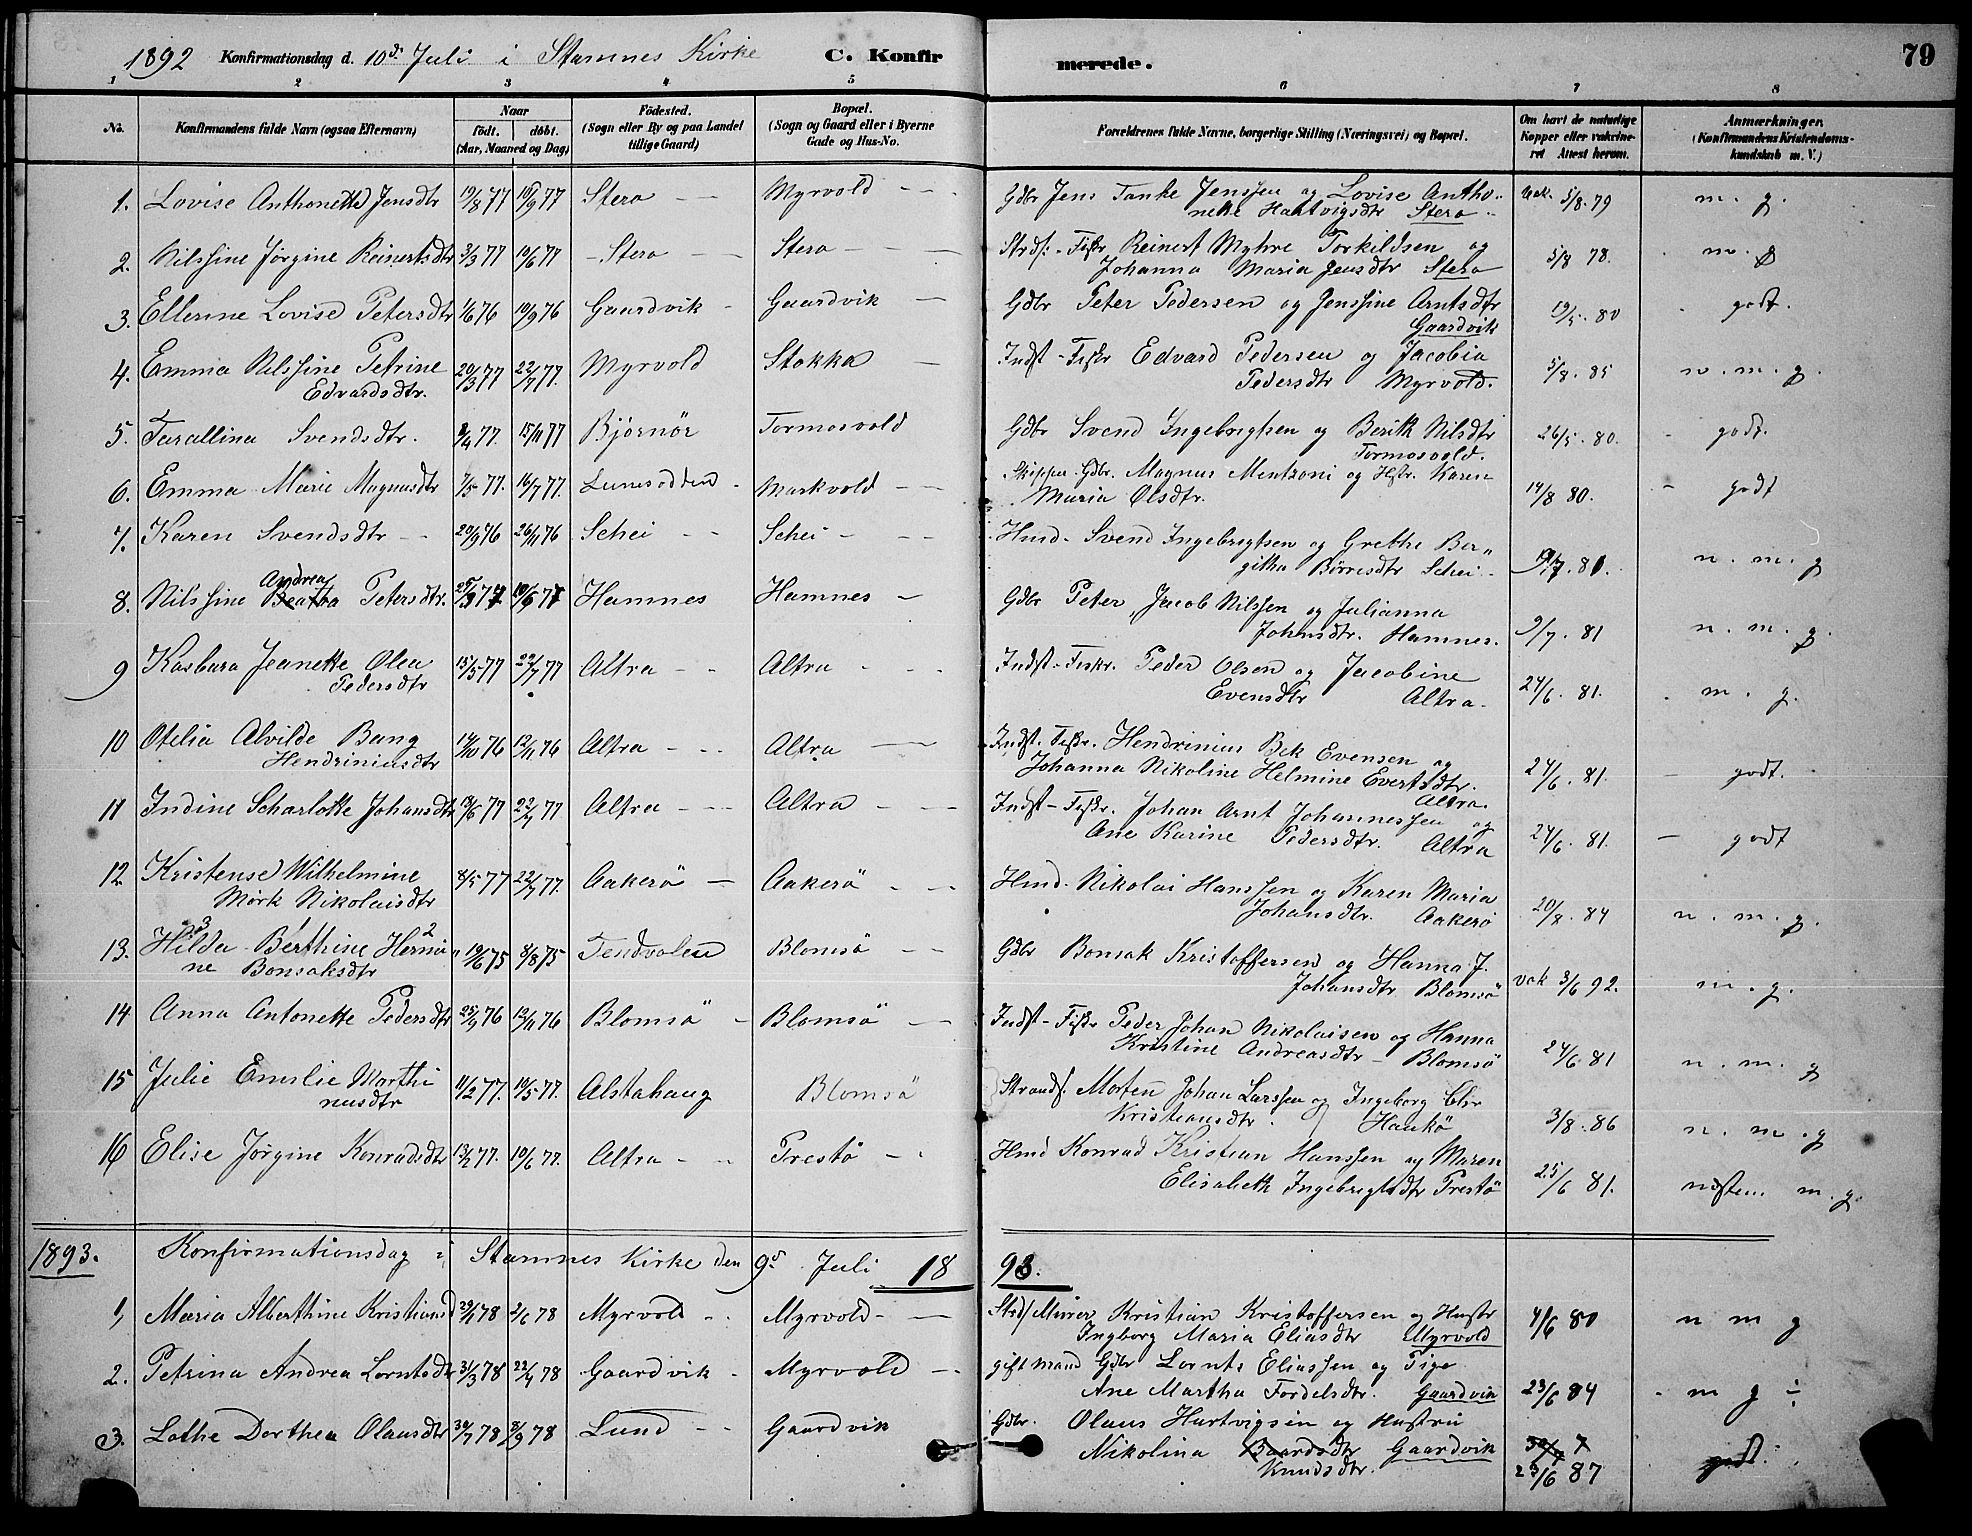 1892 Konfirmationsdag d. 10de Juli i Stamnes Kirke C. Konfirmerede. 79
1 2 3 4 5 6 7 8
No. Konfirmandens fulde Navn (ogsaa Efternavn) Naar født. døbt. (Aar, Maaned og Dag) Fødested. (Sogn eller By og paa Landet tillige Gaard) Bopæl. (Sogn og Gaard eller i Byerne Gade og Hus-No. Forældrenes fulde Navne, borgerlige Stilling (Næringsvei) og Bopæl. Om havt de naturlige Kopper eller vakcineret Attest herom. Anmærkninger. (Konfirmandens Kristendomskundskab m. V.)
1. Lovise Anthonette Jensdtr 19/8 77 16/9 77 Stera Myrvold Gdbr Jens Tanke Jenssen og Lovise Antho-
nette Hartvigsdtr Stera Vak. 5/8. 79 m. g.
2. Nilssine Jørgine Reinertsdtr 3/3 77 10/6 77 Stera Stera Strds.-Fiskr Reinert Myhre Torkildsen og
Johanna Maria Jensdtr Stera 5/8 78. m. g
3. Ellerine Lovise Petersdtr 1/6 76 10/9 76 Gaardvik Gaardvik Gdbr Peter Pedersen og Jenssine Arntsdtr
Gaardvik 19/5. 80 godt.
4. Emma Nilssine Petrine
Edvardsdtr. 20/3 77 22/7 77. Myrvold Stokka Indst-Fiskr Edvard Pedersen og Jacobia
Pedersdtr Myrvold. 5/8. 85 n. m. g.
5. Tarallina Svendsdtr. 2/4 77. 15/11 77 Bjørnör Tormosvold Gdbr Svend Ingebrigtsen og Berith Nilsdtr
Tormosvold. 26/5. 80. godt.
6. Emma Marie Magnusdtr 7/5 77. 16/7 77. Lunesodden Markvold Skipper-Gdbr. Magnus Mentzoni og Hstr. Karen
Maria Olsdtr. 14/8 80. godt
7. Karen Svendsdtr 20/9 76 26/11 76 Schei Schei Hmd. Svend Ingebrigtsen og Grethe Ber-
githa Börresdtr Schei 81. n. m. g
8. Nilssine Andrea Beatha Petersdtr. 25/3 77 10/6 77 Hamnes Hamnes Gdbr Peter Jacob Nilssen og Julianna
Johansdtr. Hamnes. 9/7. 81 n. m. g.
9 Kasbara Jeanette Olea
Pedersdtr 15/5 77 22/7 77 Altra Altra Indst-Fiskr. Peder Olsen og Jacobine
Evensdtr Altra. 24/6. 81. m. g.
10 Otelia Alvilde Bang
Hendriniusdtr 14/10 76 12/11 76 Altra Altra Indst. Fiskr. Hendrinius Bek Evensen og
Johanna Nikoline Helmine Evertsdtr.
Altra. 24/6. 81. godt.
11 Indine Scharlotte Johansdtr 13/6 77 22/7 77. Altra Altra Indst-Fiskr. Johan Arnt Johannessen og
Ane Karine Pedersdtr. Altra 24/6. 81. godt
12. Kristense Wilhelmine
Mørk Nikolaisdtr 8/5 77 22/7 77. Aakerö Aakerö Hmd. Nikolai Hanssen og Karen Maria
Johansdtr. Aakerö 20/8. 84 n. m. g.
13. Hilda 3 Berthine 1 Hermi- 2
ne Bonsaksdtr 19/6 75 8/8 75 Tendvalen Blomsö Gdbr Bonsak Kristoffersen og Hanna J.
Johansdtr Blomsö vak 3/6 92. m. g.
14 Anna Antonette Pedersdtr 25/9 76 12/11 76 Blomsö Blomsö Indst-Fiskr Peder Johan Nikolaisen og Hanna
Kristine Andreasdtr Blomsö 24/6. 81 n. m. g
15 Julie Emilie Marthi
nusdtr 11/2 77. 10/5 77. Alstahaug Blomsö Strands. Morten Johan Larssen og Ingeborg Chr
Kristiansdtr. Haukö 3/8. 86 n. m. g
16 Elise Jørgine Konradsdtr 13/2 77. 10/6 77. Altra Prestö Hmd Konrad Kristian Hanssen og Maren
Elisabeth Ingebrigtsdtr Prestö 25/6 81. næsten m. g.
1893. Konfirmationsdag i Stamnes Kirke den 9de Juli 1893.
1, Maria Alberthine Kristiansd 29/1 78 2/6 78 Myrvold Myrvold Strds/Murer Kristian Kristoffersen og Hustr
Ingborg Maria Eliasdtr Myrvold 4/6 80 n m g
2. Petrina Andrea Lorntsdtr 31/3 78 22/4 78 Gaardvik Myrvold gift mand Gdbr Lornts Eliassen og Pige
Ane Martha Fordelsdtr. Gaardvik 23/6 84 m g ÷
3. Lothe Dorthea Olausdtr 30/7 78 8/9 78 Lund Gaardvik Gdbr. Olaus Hartvigsen og Hustru
Nikolina Baardsdtr Gaardvik
Knudsdtr. 23/6 87 godt.